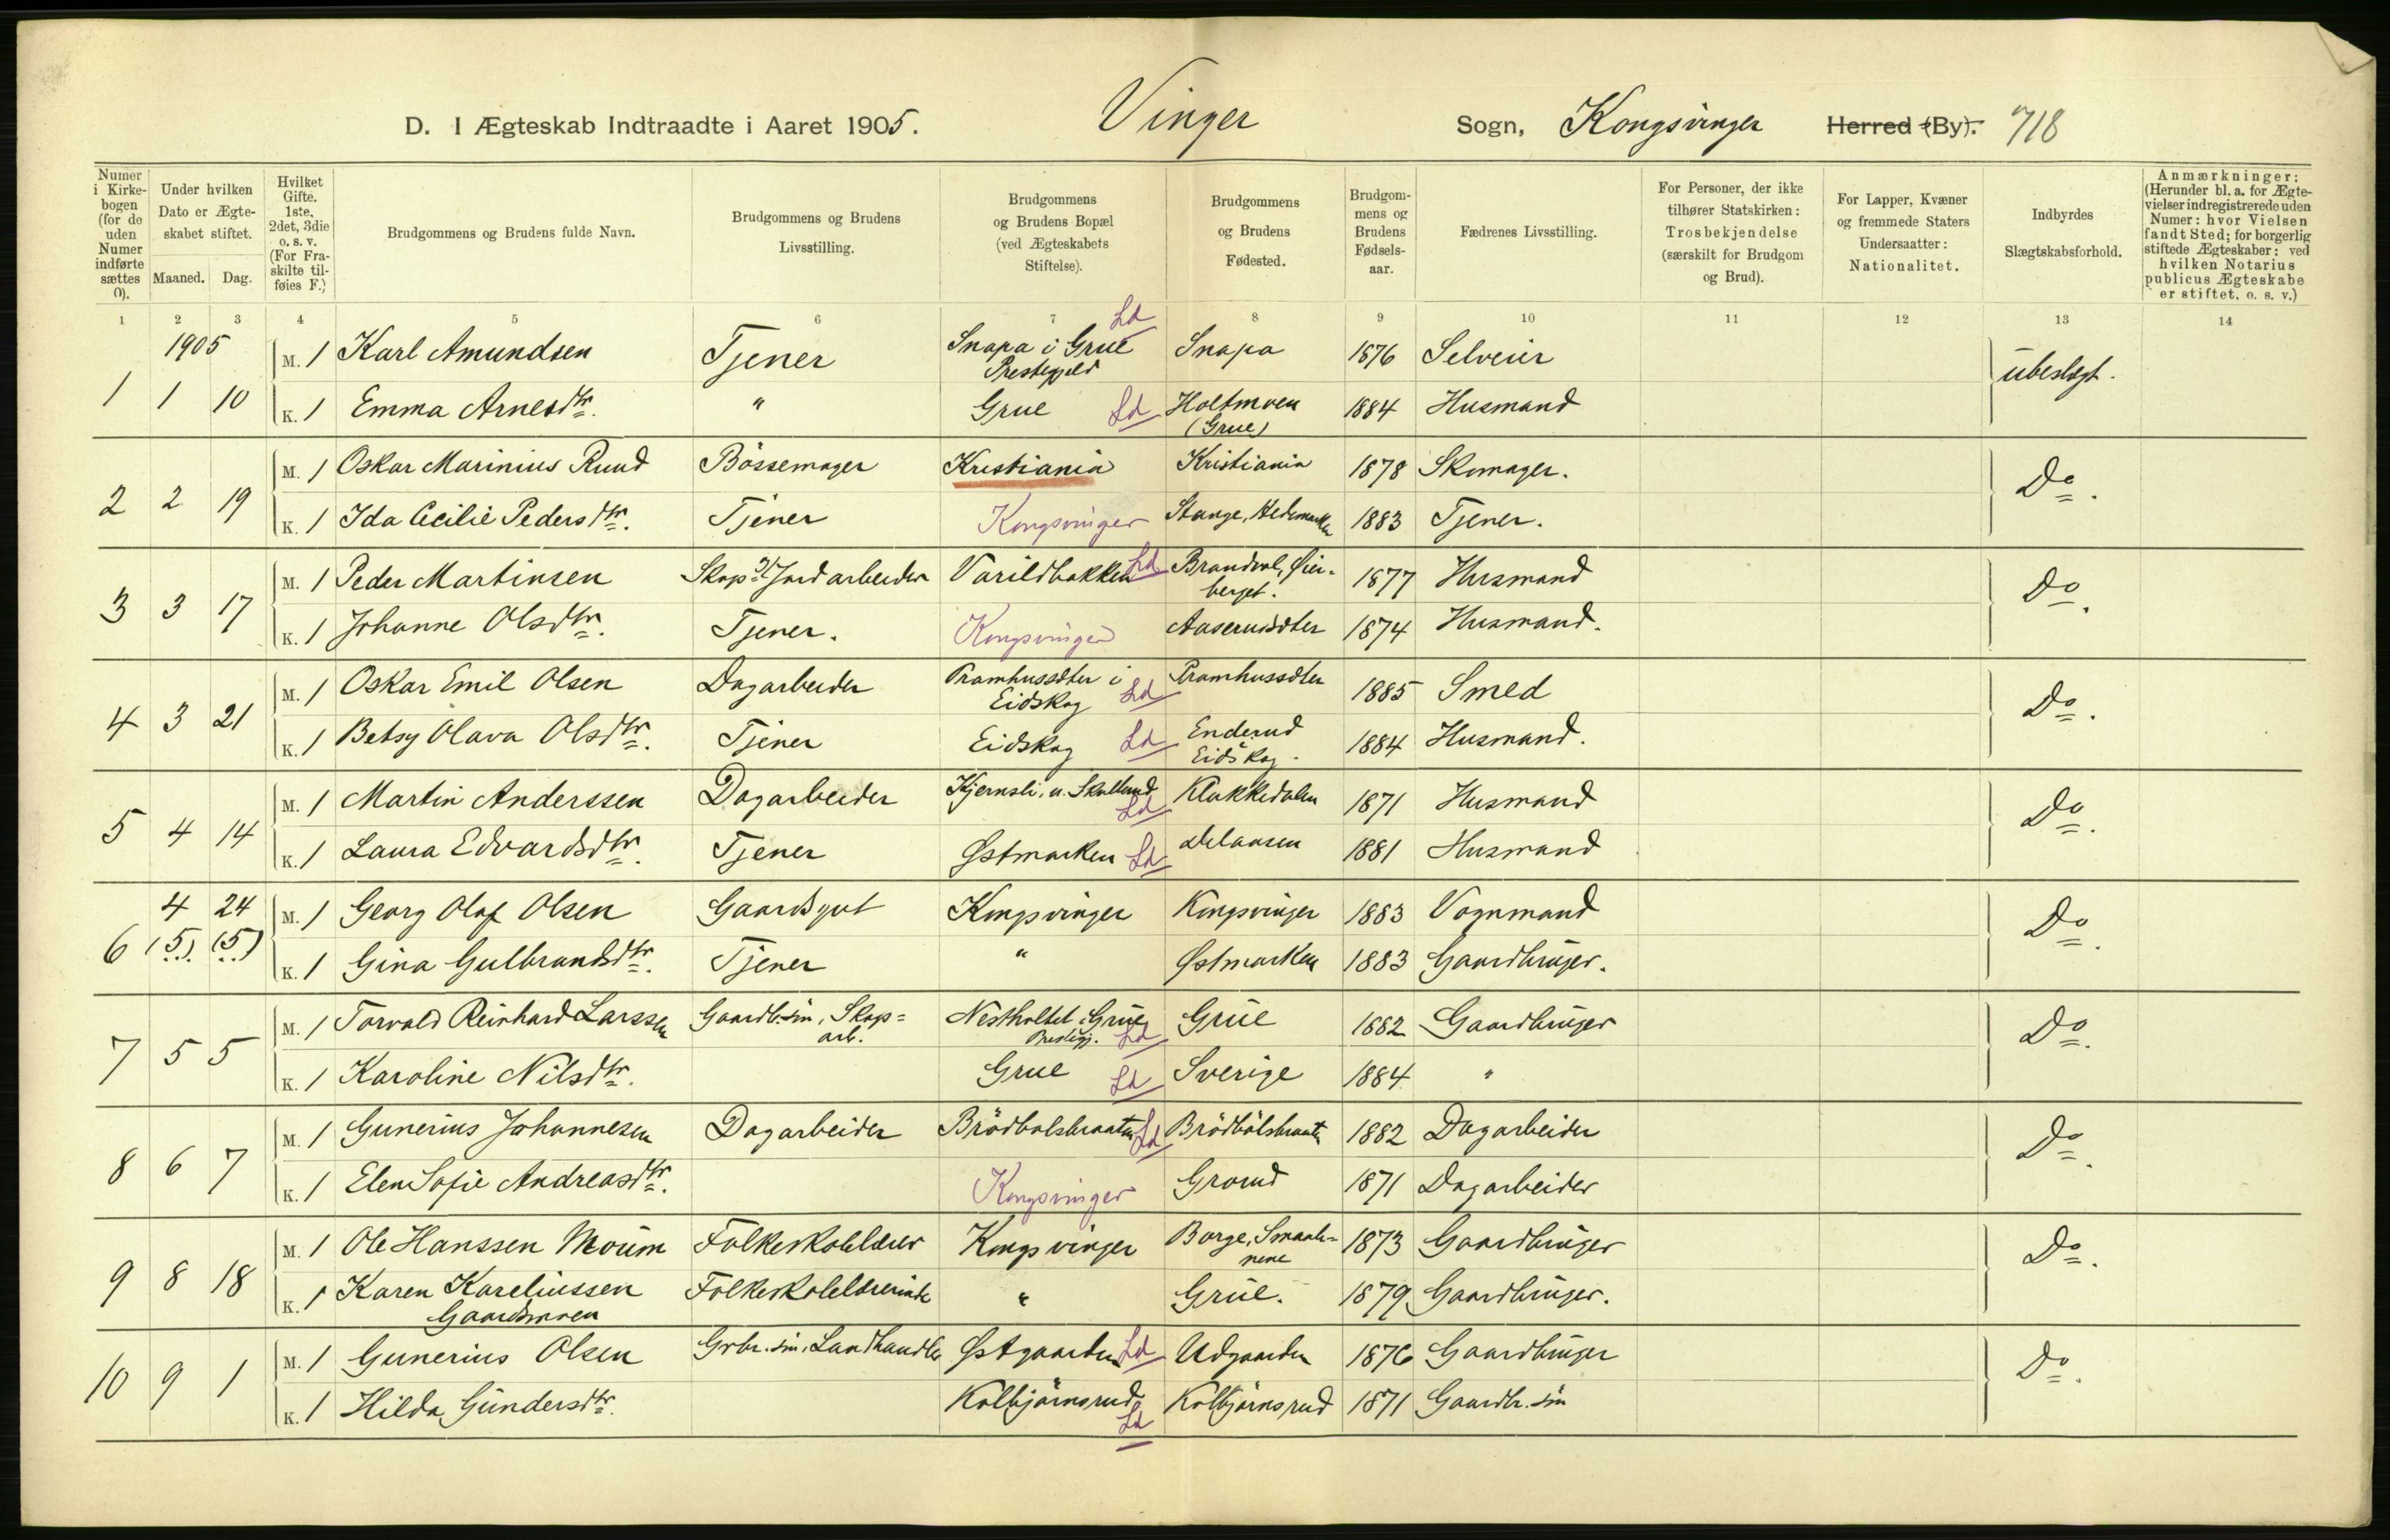 D. I Ægteskab Indtraadte i Aaret 1905. Vinger Sogn, Kongsvinger Herred (By). 718
Numer i Kirkebogen (for de uden Numer indførte sættes 0).
Under hvilken Dato er Ægteskabet stiftet.
Maaned. Dag.
Hvilket Gifte. 1ste, 2det, 3die o. s. v. (For Fraskilte tilføies F.)
Brudgommens og Brudens fulde Navn.
Brudgommens og Brudens Livsstilling.
Brudgommens og Brudens Bopæl (ved Ægteskabets Stiftelse).
Brudgommens og Brudens Fødested.
Brudgommens og Brudens Fødselsaar.
Fædrenes Livsstilling.
For Personer, der ikke tilhører Statskirken: Trosbekjendelse (særskilt for Brudgom og Brud).
For Lapper, Kvæner og fremmede Staters Undersaatter: Nationalitet.
Indbyrdes Slægtskabsforhold.
Anmærkninger: (Herunder bl. a. for Ægtevielser indregistrerede uden Numer: hvor Vielsen fandt Sted; for borgerlig stiftede Ægteskaber: ved hvilken Notarius publicus Ægteskabe er stiftet, o. s. v.)
1 2 3 4 5 6 7 8 9 10 11 12 13 14
1905 M. 1 Karl Amundsen Tjener Snapa i Grue Prestegjeld Ld Snapa 1876 Selveier ubeslægt.
1 1 10 K. 1 Emma Arnesdtr. " Grue Ld Holtmoen (Grue) 1884 Husmand
M. 1 Oskar Marinius Ruud Bössemager Kristiania Kristiania 1878 Skomager. Do.
2 2 19 K. 1 Ida Cecilie Pedersdtr. Tjener Kongsvinger Stange, Hedemarken 1883 Tjener.
M. 1 Peder Martinsen Skog- & Jordarbeider Varildbakken Ld Brandval, Øierberget. 1877 Husmand Do.
3 3 17 K. 1 Johanne Olsdtr. Tjener. Kongsvinger Aaserudsdter 1874 Husmand.
M. 1 Oskar Emil Olsen Dagarbeider Pramhussdter i Eidskog Ld Pramhussdter 1885 Smed Do.
4 3 21 K. 1 Betsy Olava Olsdtr. Tjener Eidskog Ld Enderud Eidskog. 1884 Husmand.
M. 1 Martin Anderssen Dagarbeider Kjernsli, u. Skulland Ld Klokkedalen 1871 Husmand Do.
5 4 14 K. 1 Laura Edvardsdtr. Tjener Østmarken Ld 1881 Husmand
4 24 M. 1 Georg Olaf Olsen Gaardsgut Kongsvinger Kongsvinger 1883 Vognmand Do.
6 (5). (5) K. 1 Gina Gulbrandsdtr. Tjener " Østmarken 1883 Gaardbruger.
M. 1 Torvald Reinhard Larssen Gaardb. søn, Skogarb. Nestholtet i Grue Prestgj. Ld Grue 1882 Gaardbruger Do.
7 5 5 K. 1 Karoline Nilsdtr. Grue Ld Sverige 1884 "
M. 1 Gunerius Johannesen Dagarbeider Brödbolsbraaten Ld Brödbölsbraaten 1882 Dagarbeider Do.
8 6 7 K. 1 Elen Sofie Andreasdtr. Kongsvinger Grorud 1871 Dagarbeider
M. 1 Ole Hanssen Moum Folkeskolelærer Kongsvinger Borge, Smaalenene 1873 Gaardbruger Do.
9 8 18 K. 1 Karen Kareliussen Gaardsmoen Folkeskolelærerinde " Grue. 1879 Gaardbruger.
M. 1 Gunerius Olsen Grbr. søn, Landhandler Østgaarden Ld Udgaarden 1876 Gaardbruger Do.
10 9 1 K. 1 Hilda Gundersdtr. Kolbjörnsrud Ld Kolbjörnsrud 1871 Gaardbr. søn